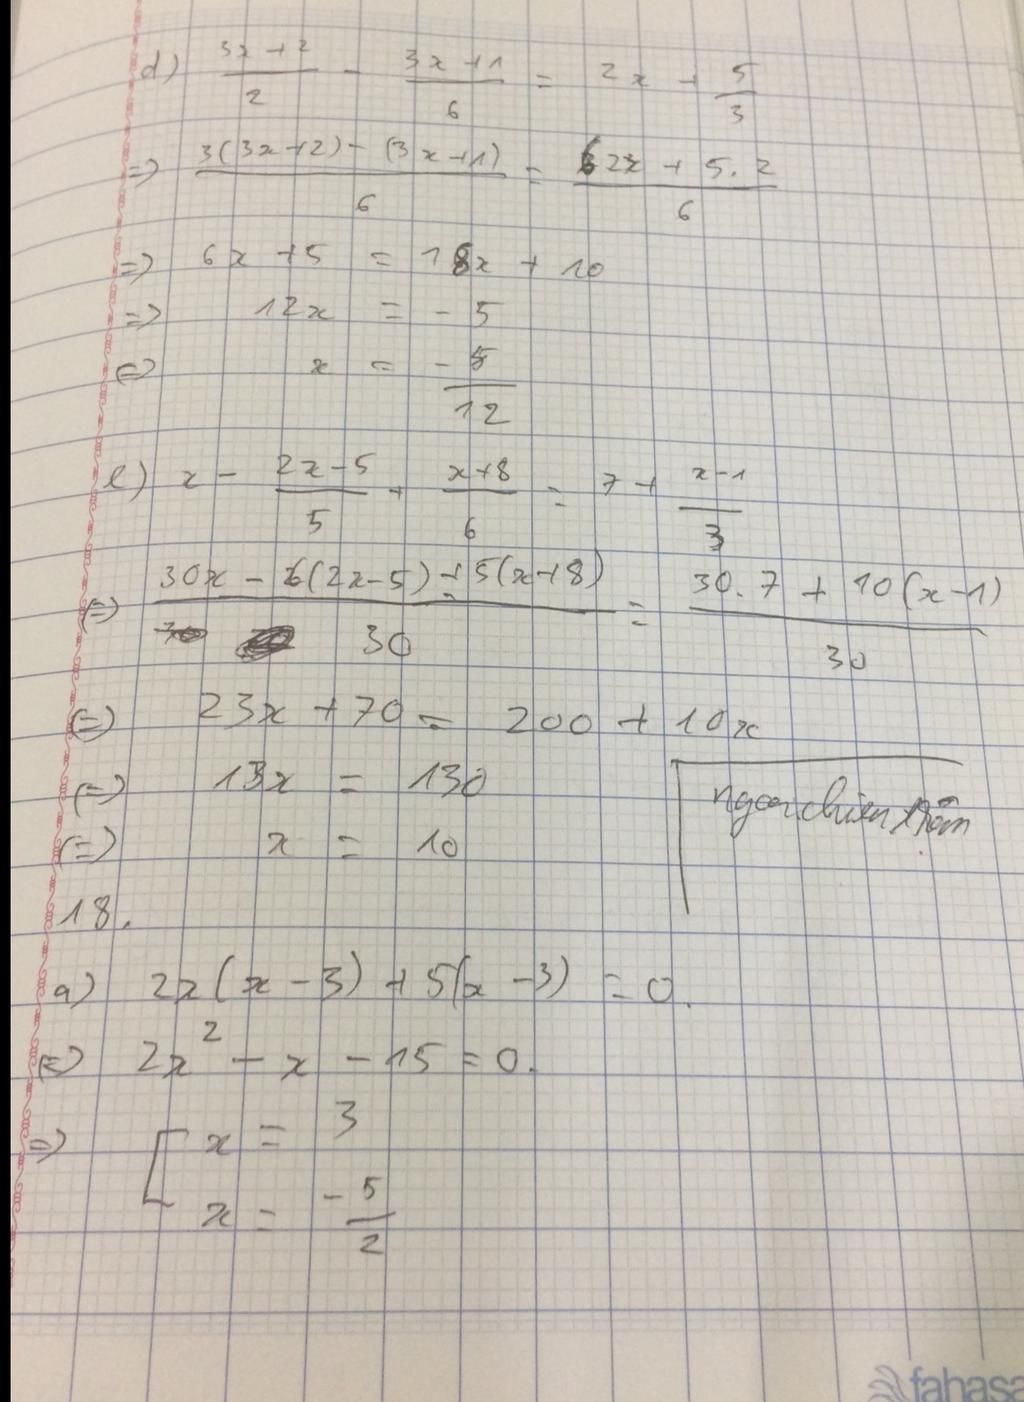 d) (3x+2)/2 - (3x+1)/6 = 2x + 5/3
=> (3(3x+2) - (3x+1))/6 = (62x + 5.2)/6
=> 6x + 5 = 18x + 10
=> 12x = -5
<=> x = -5/12
e) x - (2x-5)/5 + (x+8)/6 = 7 + (x-1)/3
<=> (30x - 6(2x-5) + 5(x+8))/30 = (30.7 + 10(x-1))/30
<=> 23x + 70 = 200 + 10x
<=> 13x = 130
<=> x = 10
18.
a) 2x(x-3) + 5(x-3) = 0.
<=> 2x² - x - 15 = 0.
=> [ x = 3
x = -5/2
fahasa